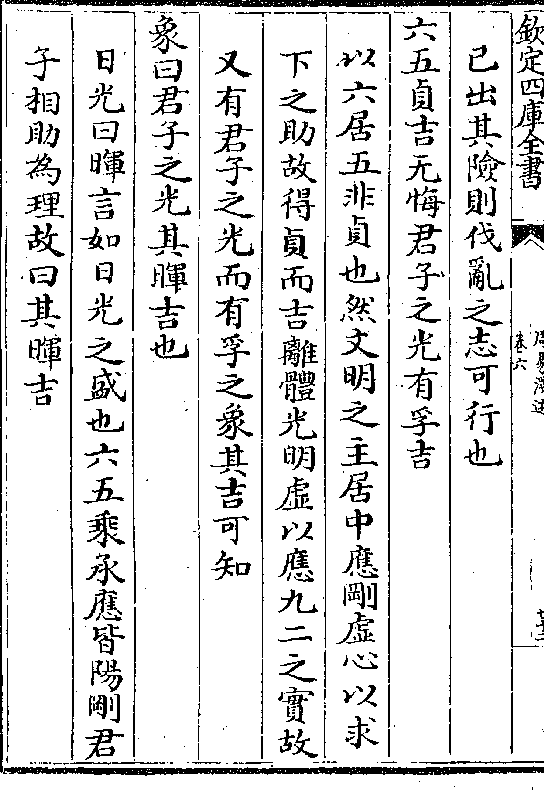 欽定四庫全書
卷六
已出其險則伐亂之志可行也
六五貞吉无悔君子之光有孚吉
以六居五非貞也然文明之主居中應剛虛心以求
下之助故得貞而吉離體光明虛以應九二之實故
又有君子之光而有孚之象其吉可知
象曰君子之光其暉吉也
日光曰暉言如日光之盛也六五乘承應皆陽剛君
子相助為理故曰其暉吉